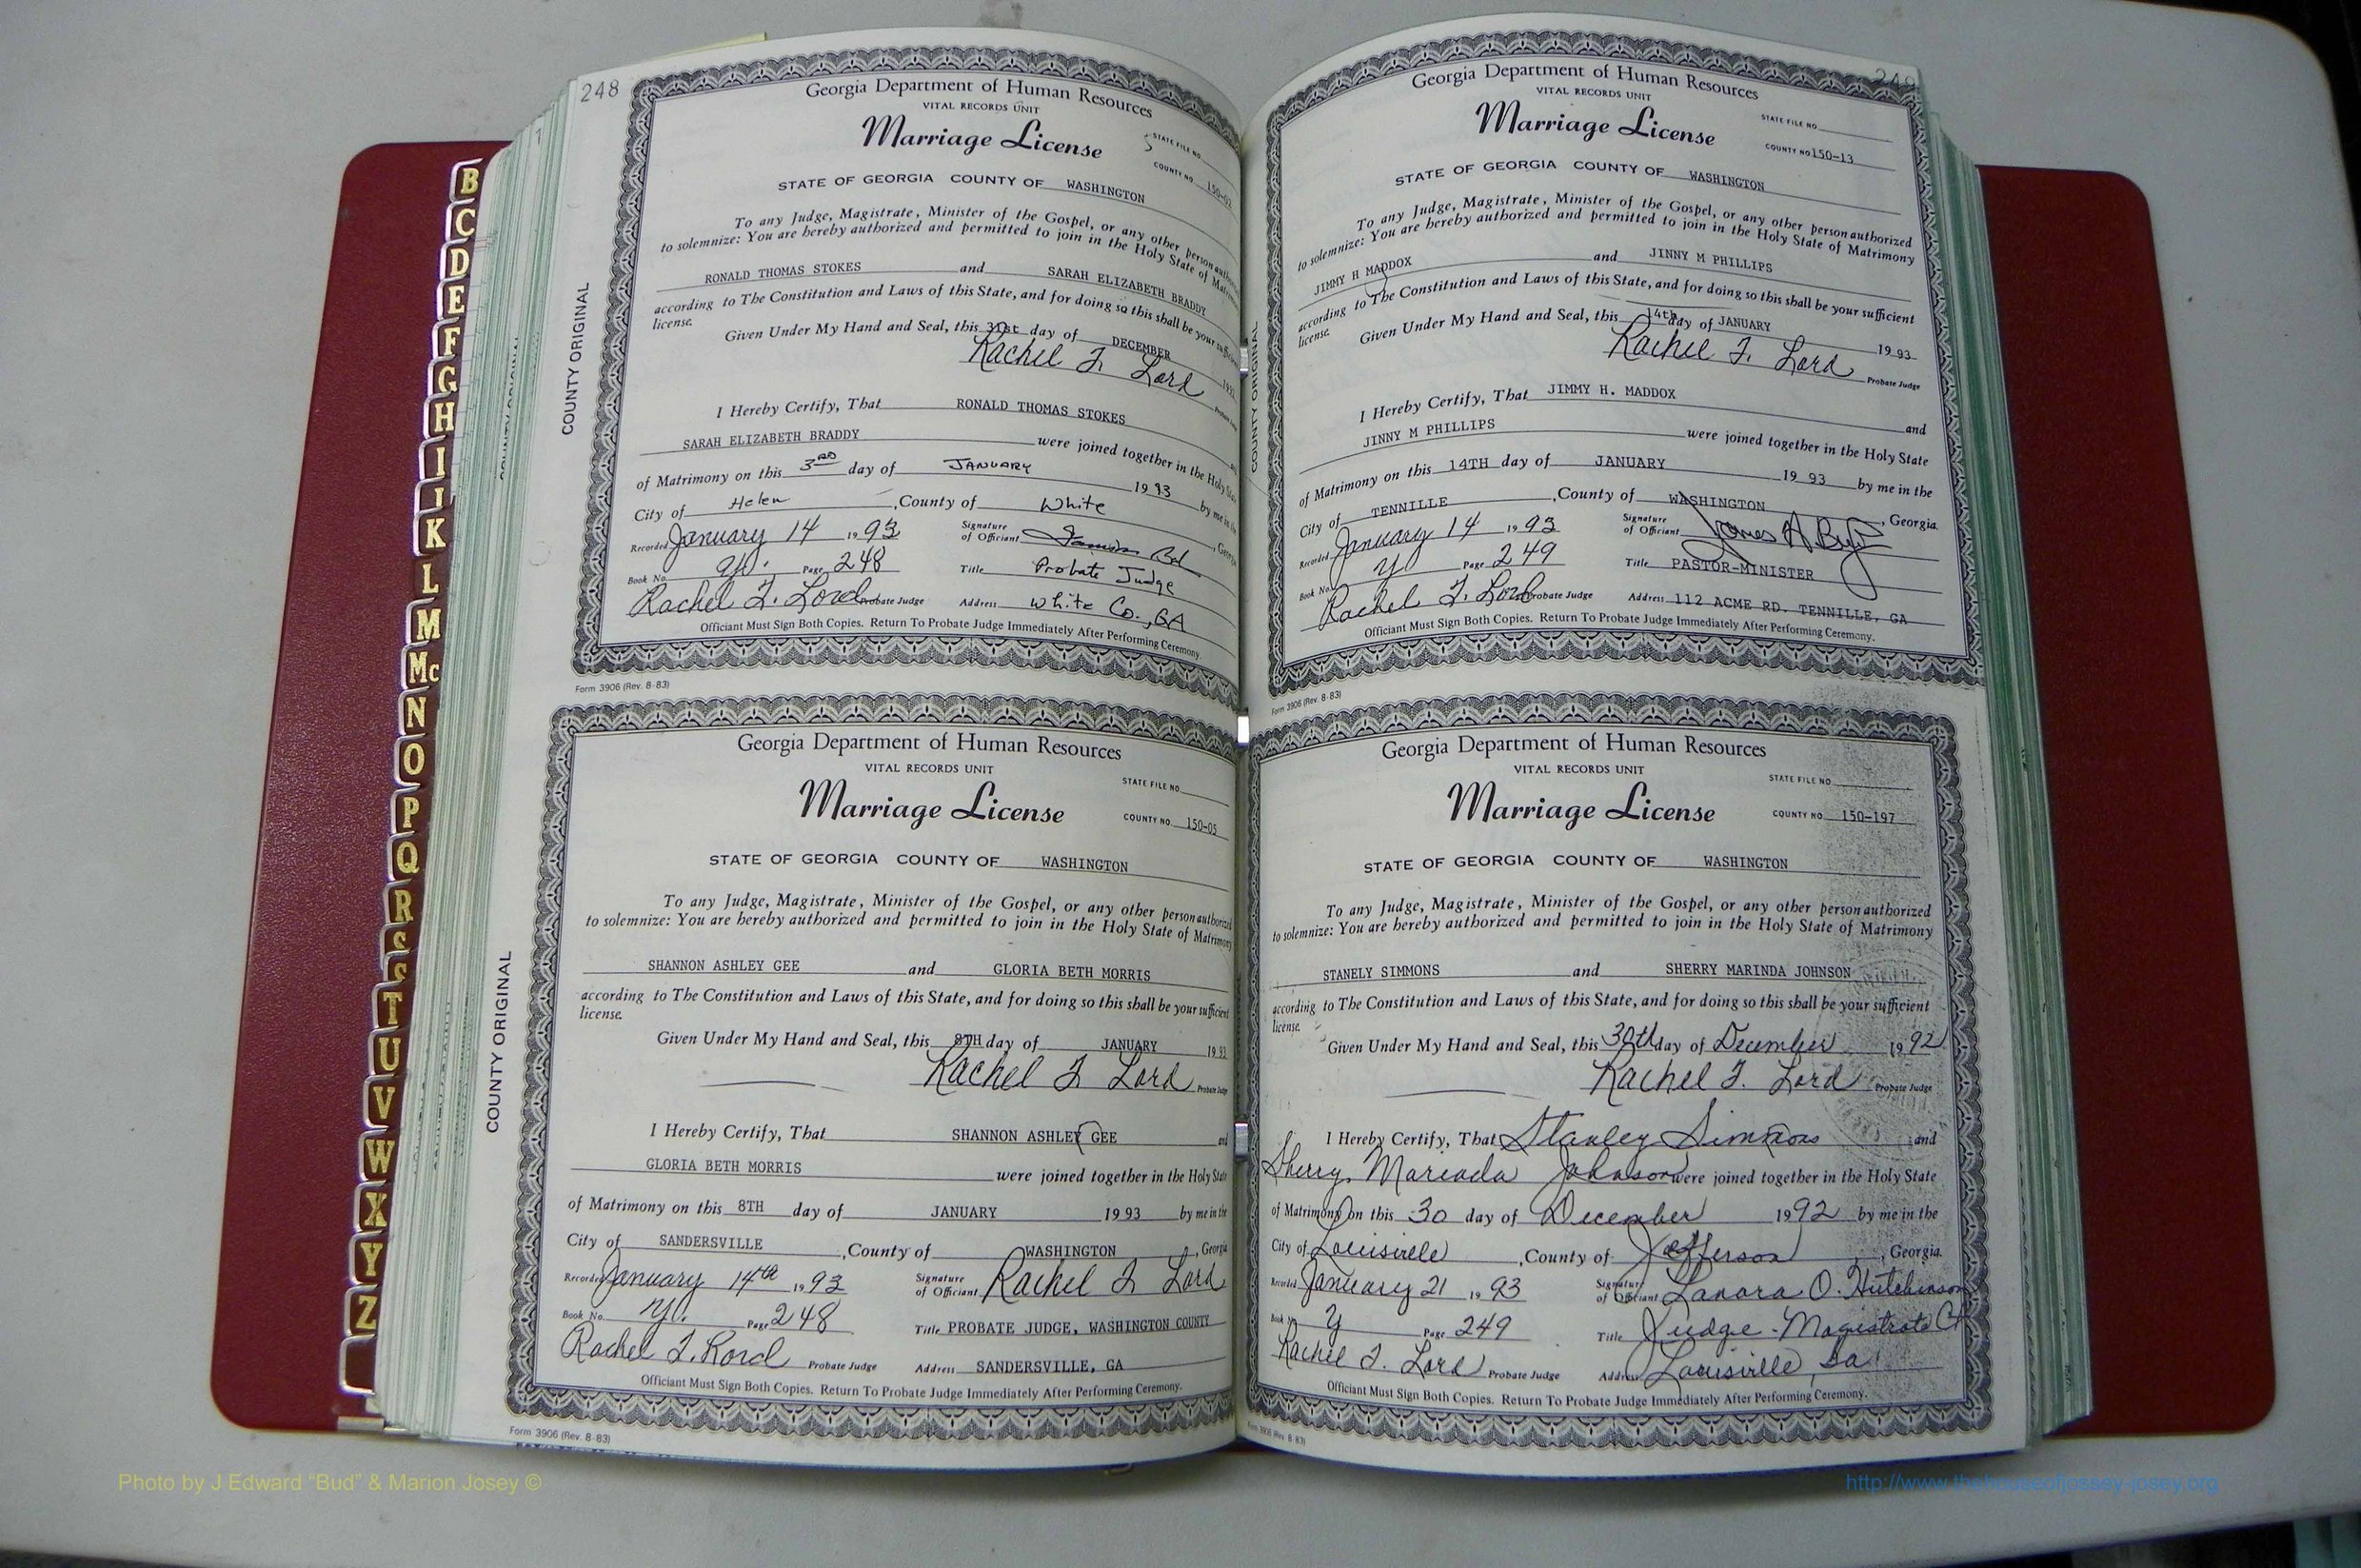 248
Georgia Department of Human Resources
VITAL RECORDS UNIT
Marriage License
STATE FILE NO.
COUNTY NO.
STATE OF GEORGIA COUNTY OF WASHINGTON
To any Judge, Magistrate, Minister of the Gospel, or any other person
to solemnize: You are hereby authorized and permitted to join in the Holy State of
RONALD THOMAS STOKES and SARAH ELIZABETH BRADDY
according to The Constitution and Laws of this State, and for doing so this shall be your
license.
Given Under My Hand and Seal, this 31st day of DECEMBER
Rachel T. Lord
I Hereby Certify, That RONALD THOMAS STOKES
SARAH ELIZABETH BRADDY were joined together in the Holy
of Matrimony on this 3RD day of JANUARY 1993 by me in the
City of Helen, County of White
Recorded January 14 1993 Signature of Officiant
Book No. Page 248 Title Probate Judge
Rachel T. Lord Probate Judge Address White Co., GA
Officiant Must Sign Both Copies. Return To Probate Judge Immediately After Performing Ceremony
Form 3906 (Rev. 8-83)
COUNTY ORIGINAL
Georgia Department of Human Resources
VITAL RECORDS UNIT
Marriage License
STATE FILE NO.
COUNTY NO. 150-05
STATE OF GEORGIA COUNTY OF WASHINGTON
To any Judge, Magistrate, Minister of the Gospel, or any other person authorized
to solemnize: You are hereby authorized and permitted to join in the Holy State of Matrimony
SHANNON ASHLEY GEE and GLORIA BETH MORRIS
according to The Constitution and Laws of this State, and for doing so this shall be your sufficient
license.
Given Under My Hand and Seal, this 8TH day of JANUARY 1993
Rachel T Lord Probate Judge
I Hereby Certify, That SHANNON ASHLEY GEE and
GLORIA BETH MORRIS were joined together in the Holy State
of Matrimony on this 8TH day of JANUARY 1993 by me in the
City of SANDERSVILLE, County of WASHINGTON, Georgia
Recorded January 14th 1993 Signature of Officiant Rachel T Lord
Book No. Page 248 Title PROBATE JUDGE, WASHINGTON COUNTY
Rachel T. Lord Probate Judge Address SANDERSVILLE, GA
Officiant Must Sign Both Copies. Return To Probate Judge Immediately After Performing Ceremony.
Form 3906 (Rev. 8-83)
COUNTY ORIGINAL
249
Georgia Department of Human Resources
VITAL RECORDS UNIT
Marriage License
STATE FILE NO.
COUNTY NO. 150-13
STATE OF GEORGIA COUNTY OF WASHINGTON
To any Judge, Magistrate, Minister of the Gospel, or any other person authorized
to solemnize: You are hereby authorized and permitted to join in the Holy State of Matrimony
JIMMY H MADDOX and JINNY M PHILLIPS
according to The Constitution and Laws of this State, and for doing so this shall be your sufficient
license.
Given Under My Hand and Seal, this 14th day of JANUARY 1993
Rachel T. Lord Probate Judge
I Hereby Certify, That JIMMY H. MADDOX and
JINNY M PHILLIPS were joined together in the Holy State
of Matrimony on this 14TH day of JANUARY 1993 by me in the
City of TENNILLE, County of WASHINGTON, Georgia
Recorded January 14 1993 Signature of Officiant James A
Book No. Y Page 249 Title PASTOR-MINISTER
Rachel T. Lord Probate Judge Address 112 ACME RD. TENNILLE, GA
Officiant Must Sign Both Copies. Return To Probate Judge Immediately After Performing Ceremony.
Form 3906 (Rev. 8-83)
Georgia Department of Human Resources
VITAL RECORDS UNIT
Marriage License
STATE FILE NO.
COUNTY NO. 150-197
STATE OF GEORGIA COUNTY OF WASHINGTON
To any Judge, Magistrate, Minister of the Gospel, or any other person authorized
to solemnize: You are hereby authorized and permitted to join in the Holy State of Matrimony
STANELY SIMMONS and SHERRY MARINDA JOHNSON
according to The Constitution and Laws of this State, and for doing so this shall be your sufficient
license.
Given Under My Hand and Seal, this 30th day of December 1992
Rachel T. Lord Probate Judge
I Hereby Certify, That Stanley Simmons and
Sherry Marinda Johnson were joined together in the Holy State
of Matrimony on this 30 day of December 1992 by me in the
City of Louisville, County of Jefferson, Georgia.
Recorded January 21 1993 Signature of Officiant O. Hutchinson
Book No. Y Page 249 Title Judge-Magistrate Ct
Rachel T. Lord Probate Judge Address Louisville, Ga.
Officiant Must Sign Both Copies. Return To Probate Judge Immediately After Performing Ceremony.
Form 3906 (Rev. 8-83)
B
C
D
E
F
G
H
I
J
K
L
M
Mc
N
O
P
Q
R
S
S
T
U
V
W
X
Y
Z
Photo by J Edward “Bud” & Marion Josey ©
http://www.thehouseofjossey-josey.org